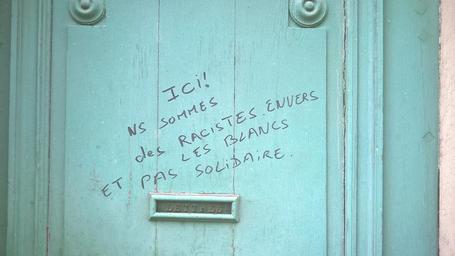 ICi!
NS SOMMES
des RACISTES ENVERS
LES BLANCS
ET PAS SOLiDAiRE.
LETTRES